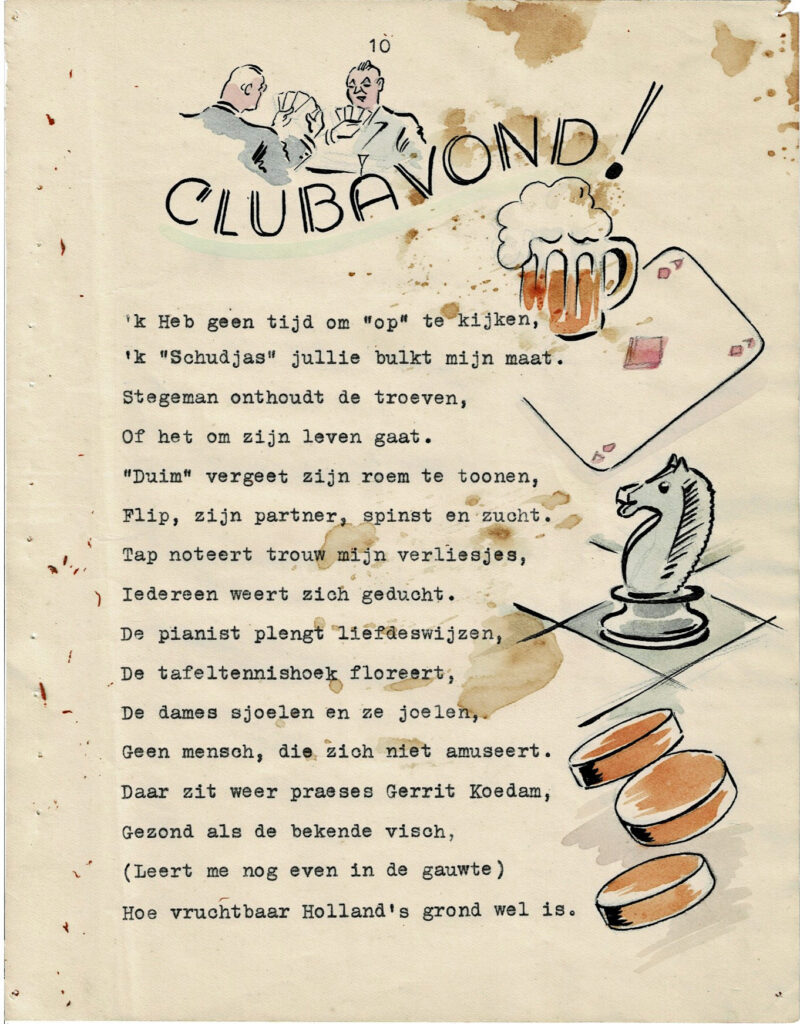 10
CLUBAVOND!
'k Heb geen tijd om "op" te kijken,
'k "Schudjas" jullie bulkt mijn maat.
Stegeman onthoudt de troeven,
Of het om zijn leven gaat.
"Duim" vergeet zijn roem te toonen,
Flip, zijn partner, spinst en zucht.
Tap noteert trouw mijn verliesjes,
Iedereen weert zich geducht.
De pianist plengt liefdeswijzen,
De tafeltennishoek floreert,
De dames sjoelen en ze joelen,
Geen mensch, die zich niet amuseert.
Daar zit weer praeses Gerrit Koedam,
Gezond als de bekende visch,
(Leert me nog even in de gauwte)
Hoe vruchtbaar Holland's grond wel is.